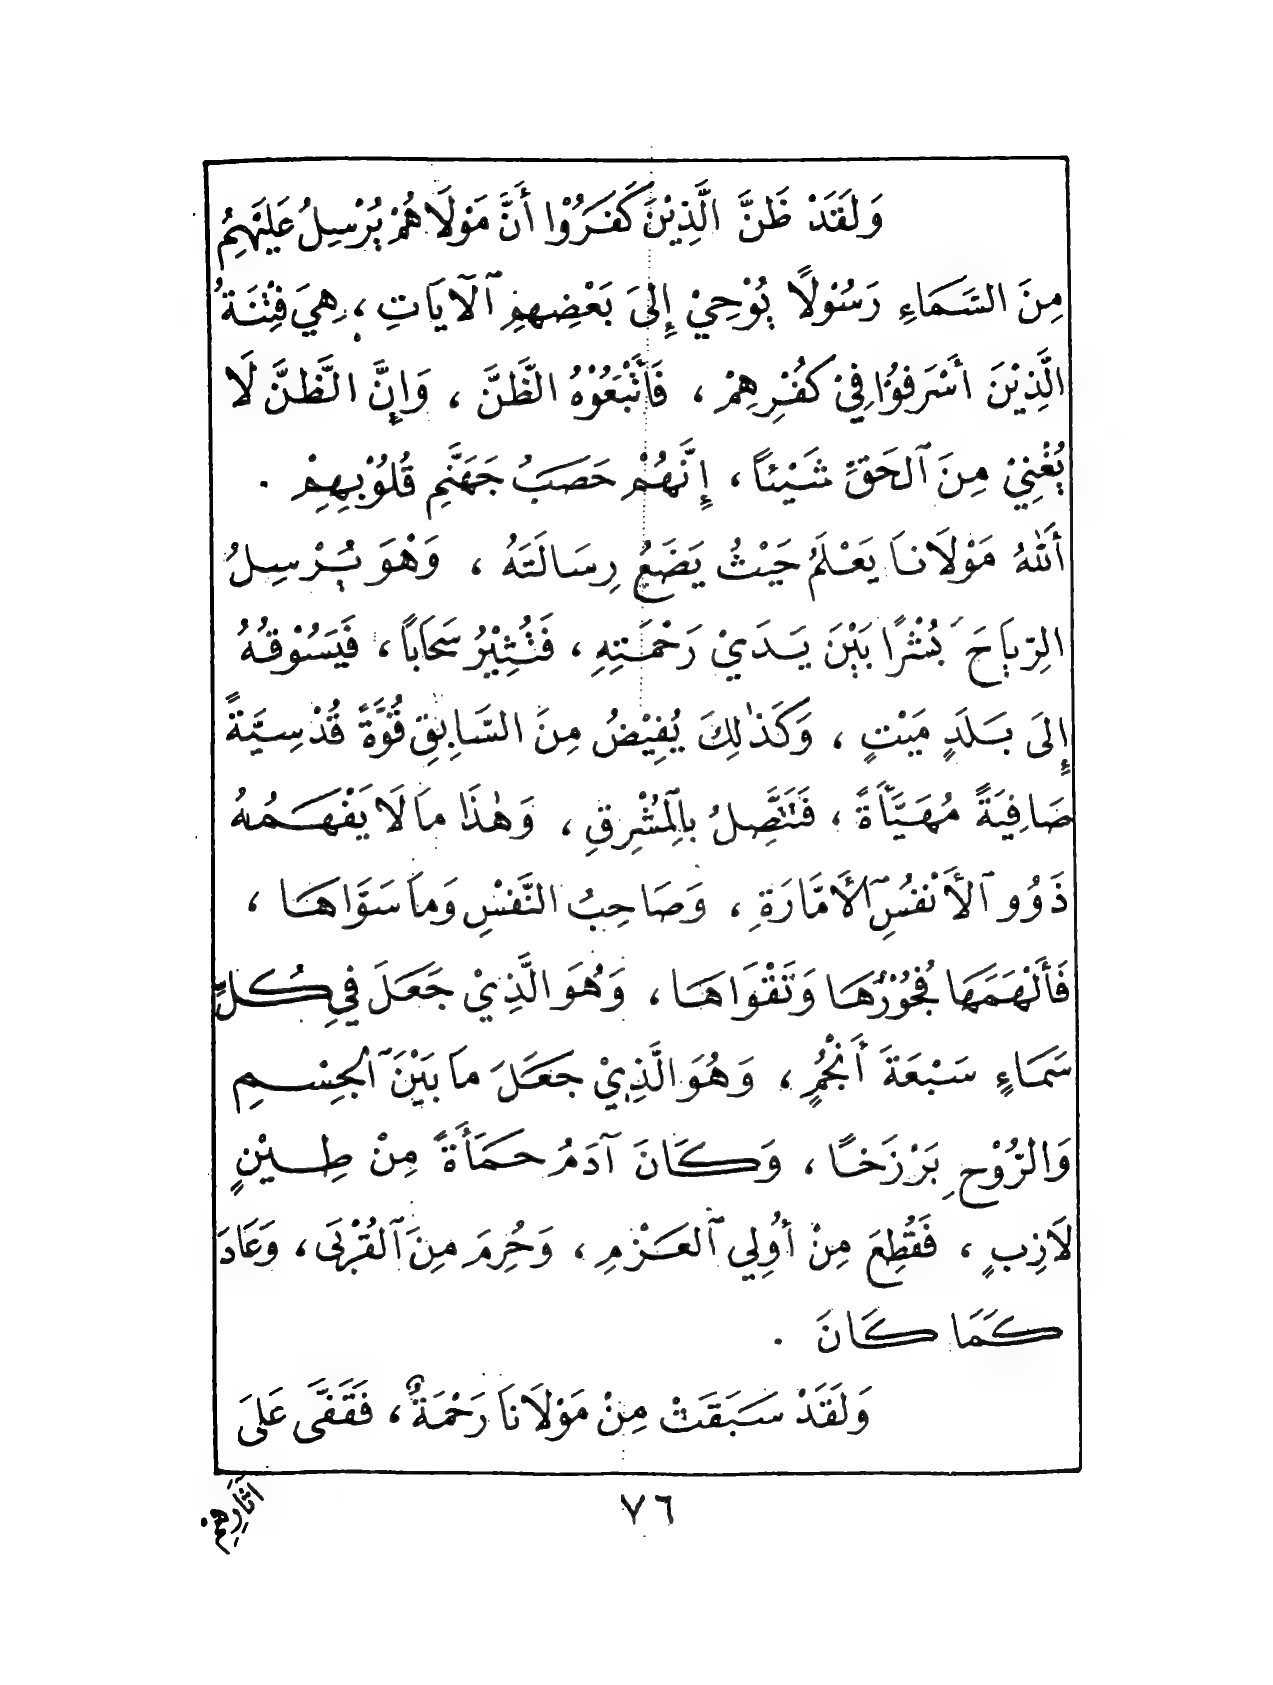 وَلَقَدْ ظَنَّ الَّذِيْنَ كَفَرُوْا أَنَّ مَوْلَاهُمْ يُرْسِلُ عَلَيْهِمُ
مِنَ السَّمَاءِ رَسُوْلًا يُوْحِيْ إِلَى بَعْضِهِمِ ٱلْآيَاتِ ، هِيَ فِتْنَةُ
الَّذِيْنَ أَسْرَفُوْا فِيْ كُفْرِهِمْ ، فَأَتْبَعُوْهُ الظَّنَّ ، وَإِنَّ الظَّنَّ لَا
يُغْنِيْ مِنَ ٱلْحَقِّ شَيْئاً ، إِنَّهُمْ حَصَبُ جَهَنَّمِ قُلُوْبِهِمْ .
أَللهُ مَوْلَانَا يَعْلَمُ حَيْثُ يَضَعُ رِسَالَتَهُ ، وَهْوَ يُرْسِلُ
الرِّيَاحَ بُشْرًا بَيْنَ يَدَيْ رَحْمَتِهِ ، فَتُثِيْرُ سَحَاباً ، فَيَسُوْقُهُ
إِلَى بَلَدٍ مَيْتٍ ، وَكَذٰلِكَ يُفِيْضُ مِنَ السَّابِقِ قُوَّةً قُدْسِيَّةً
صَافِيَةً مُهَيَّأَةً ، فَتَتَّصِلُ بِٱلْمُشْرِقِ ، وَهٰذَا مَا لَا يَفْهَمُهُ
ذَوُو ٱلْأَنْفُسِ ٱلْأَمَّارَةِ ، وَصَاحِبُ النَّفْسِ وَمَا سَوَّاهَا ،
فَأَلْهَمَهَا فُجُوْرَهَا وَتَقْوَاهَا ، وَهُوَ الَّذِيْ جَعَلَ فِي كُلِّ
سَمَاءٍ سَبْعَةَ أَنْجُمٍ ، وَهُوَ الَّذِيْ جَعَلَ مَا بَيْنَ ٱلْجِسْمِ
وَالرُّوْحِ بَرْزَخًا ، وَكَانَ آدَمُ حَمَأَةً مِنْ طِيْنٍ
لَازِبٍ ، فَقُطِعَ مِنْ أُوْلِي ٱلْعَزْمِ ، وَحُرِمَ مِنَ ٱلْقُرْبَى ، وَعَادَ
كَمَا كَانَ .
وَلَقَدْ سَبَقَتْ مِنْ مَوْلَانَا رَحْمَةٌ ، فَقَفَّى عَلَى
٧٦
آثَارِهِمْ